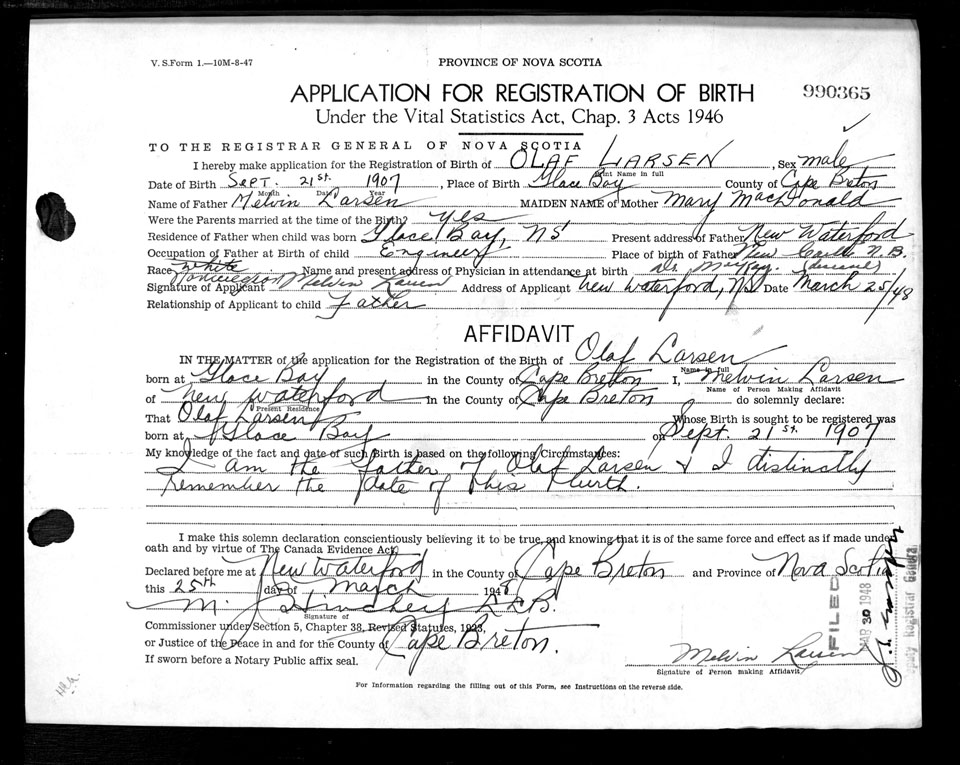 V. S. Form 1.—10M-8-47
PROVINCE OF NOVA SCOTIA
APPLICATION FOR REGISTRATION OF BIRTH
990365
Under the Vital Statistics Act, Chap. 3 Acts 1946
TO THE REGISTRAR GENERAL OF NOVA SCOTIA
I hereby make application for the Registration of Birth of OLAF LARSEN, Sex male
Print Name in full
Date of Birth SEPT. 21st. 1907, Place of Birth Glace Bay County of Cape Breton
Month Date Year
Name of Father Melvin Larsen MAIDEN NAME of Mother Mary MacDonald
Were the Parents married at the time of the Birth? yes
Residence of Father when child was born Glace Bay, NS Present address of Father New Waterford
Occupation of Father at Birth of child Engineer Place of birth of Father New N.B.
Race White Name and present address of Physician in attendance at birth Dr.
Norwegian
Signature of Applicant Melvin Larsen Address of Applicant New Waterford, NS Date March 25/48
Relationship of Applicant to child Father
AFFIDAVIT
IN THE MATTER of the application for the Registration of the Birth of Olaf Larsen
Name in full
born at Glace Bay in the County of Cape Breton I, Melvin Larsen
Name of Person Making Affidavit
of New Waterford in the County of Cape Breton do solemnly declare:
Present Residence
That Olaf Larsen Whose Birth is sought to be registered was
born at Glace Bay on Sept. 21st. 1907
My knowledge of the fact and date of such Birth is based on the following Circumstances:
I am the father of Olaf Larsen & I distinctly
remember the date of this birth.
I make this solemn declaration conscientiously believing it to be true, and knowing that it is of the same force and effect as if made under
oath and by virtue of The Canada Evidence Act.
Declared before me at New Waterford in the County of Cape Breton and Province of Nova Scotia
this 25th day of March 1948
M. J. L.L.B.
Signature of
Commissioner under Section 5, Chapter 38, Revised Statutes, 1923,
or Justice of the Peace in and for the County of Cape Breton.
If sworn before a Notary Public affix seal.
Melvin Larsen
Signature of Person making Affidavit
For Information regarding the filling out of this Form, see Instructions on the reverse side.
FILED
MAR 30 1948
Deputy Registrar General